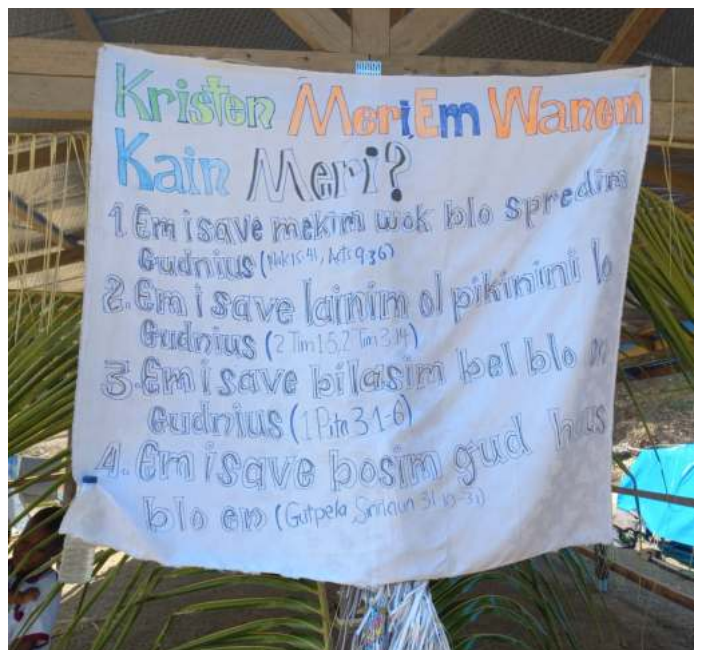 Kristen Meri Em Wanem
Kain Meri?
1. Em i save mekim wok blo spredim
Gudnius (Mak 15:41, Acts 9:36)
2. Em i save lainim ol pikinini lo
Gudnius (2 Tim 1:5, 2 Tim 3:14)
3. Em i save bilasim bel blo en
Gudnius (1 Pita 3:1-6)
4. Em i save bosim gud haus
blo en (Gutpela Sindaun 31:10-31)